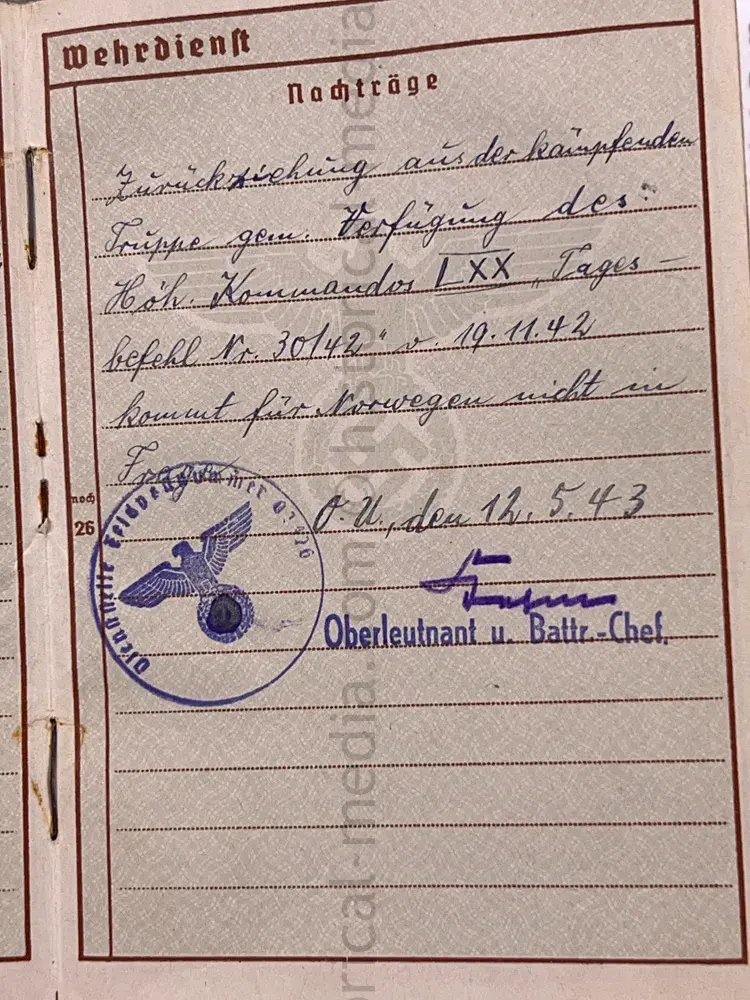 Wehrdienst
Nachträge
Zurückziehung aus der kämpfenden
Truppe gem. Verfügung des
Höh. Kommandos LXX „Tages-
befehl Nr. 30/42" v. 19.11.42
kommt für Norwegen nicht in
Frage
noch
26
O.U., den 12.5.43
Oberleutnant u. Battr.-Chef.
Dienststelle Feldpostnummer
historical-media.com
historical-media